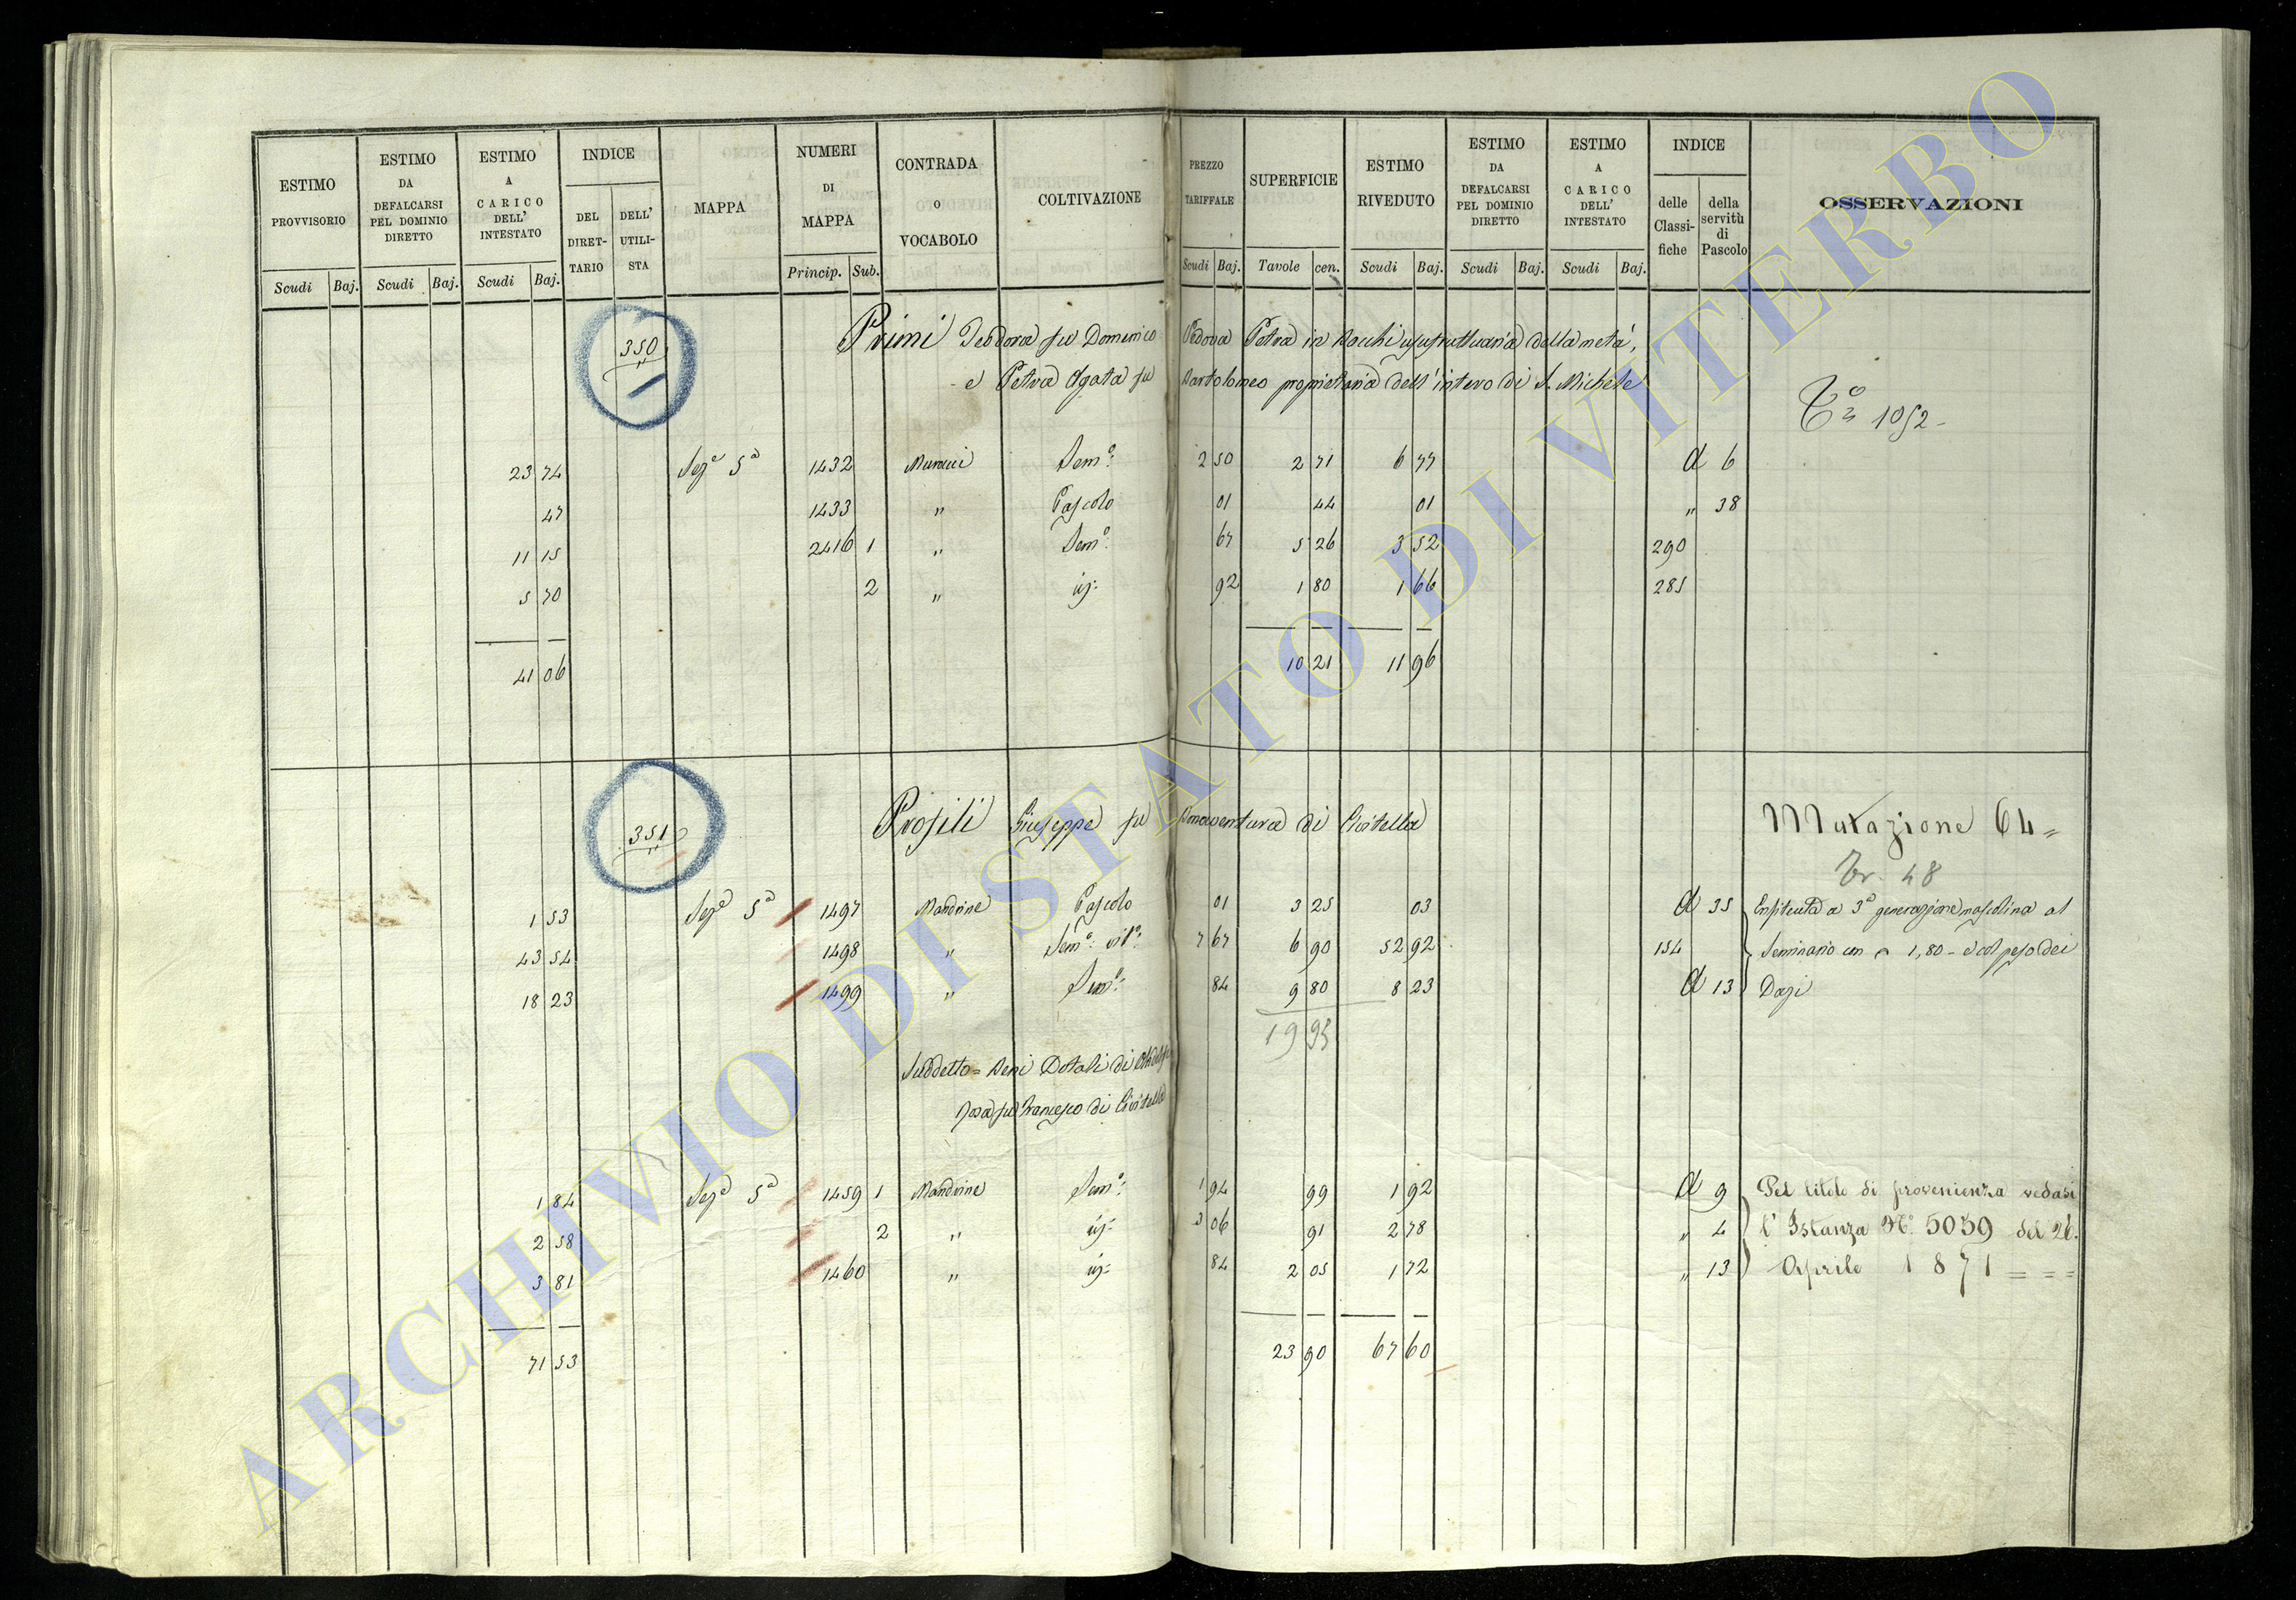 ESTIMO PROVVISORIO Scudi Baj.
ESTIMO DA DEFALCARSI PEL DOMINIO DIRETTO Scudi Baj.
ESTIMO A CARICO DELL' INTESTATO Scudi Baj.
INDICE DEL DIRET-TARIO DELL' UTILI-STA
MAPPA
NUMERI DI MAPPA Princip. Sub.
CONTRADA O VOCABOLO
COLTIVAZIONE
PREZZO TARIFFALE Scudi Baj.
SUPERFICIE Tavole cen.
ESTIMO RIVEDUTO Scudi Baj.
ESTIMO DA DEFALCARSI PEL DOMINIO DIRETTO Scudi Baj.
ESTIMO A CARICO DELL' INTESTATO Scudi Baj.
INDICE delle Classi-fiche della servitù di Pascolo
OSSERVAZIONI
350
Primi Teodora fu Domenico Vedova Petra in Bacchi usufruttuaria della metà,
e Petra Agata fu Bartolomeo proprietaria dell'intero di S. Michele
1052
23 74 Sez.e 5a 1432 Sem.o 2 50 2 71 6 77 A 6
47 1433 " Pascolo 01 44 01 " 38
11 15 2416 1 " Sem.o 67 5 26 3 52 290
5 70 2 " " 92 1 80 1 66 285
41 06 10 21 11 96
351
Profili Giuseppe fu Bonaventura di Civitella Mutazione 64
48
1 53 Sez.e 5a 1497 Mandrine Pascolo 01 3 25 03 A 35 Enfiteuta a 3a generazione mascolina al
43 54 1498 " Sem.o vit.o 7 67 6 90 52 92 154 Seminario con 1,80 - e col peso dei
18 23 1499 " Sem.o 84 9 80 8 23 A 13 Dazi
19 95
Suddetto = Beni Dotali di
Rosa fu Francesco di Civitella
1 84 Sez.e 5a 1459 1 Mandrine Sem.o 1 94 99 1 92 A 9 Pel titolo di provenienza vedasi
2 58 2 " 3 06 91 2 78 " 4 l'Istanza N.o 5059 del 26
3 81 1460 " 84 2 05 1 72 " 13 Aprile 1871 = = =
71 53 23 90 67 60
ARCHIVIO DI STATO DI VITERBO